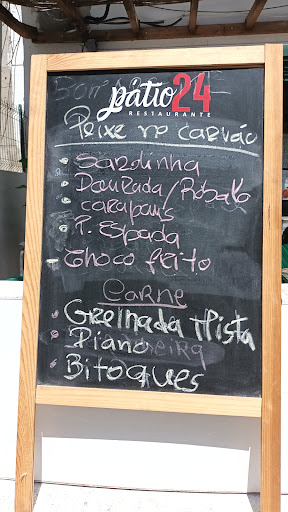 pátio 24
RESTAURANTE
Peixe no carvão
Sardinha
Dourada/Robalo
carapaus
P. Espada
Choco frito
Carne
Grelhada Mista
Piano
Bitoques